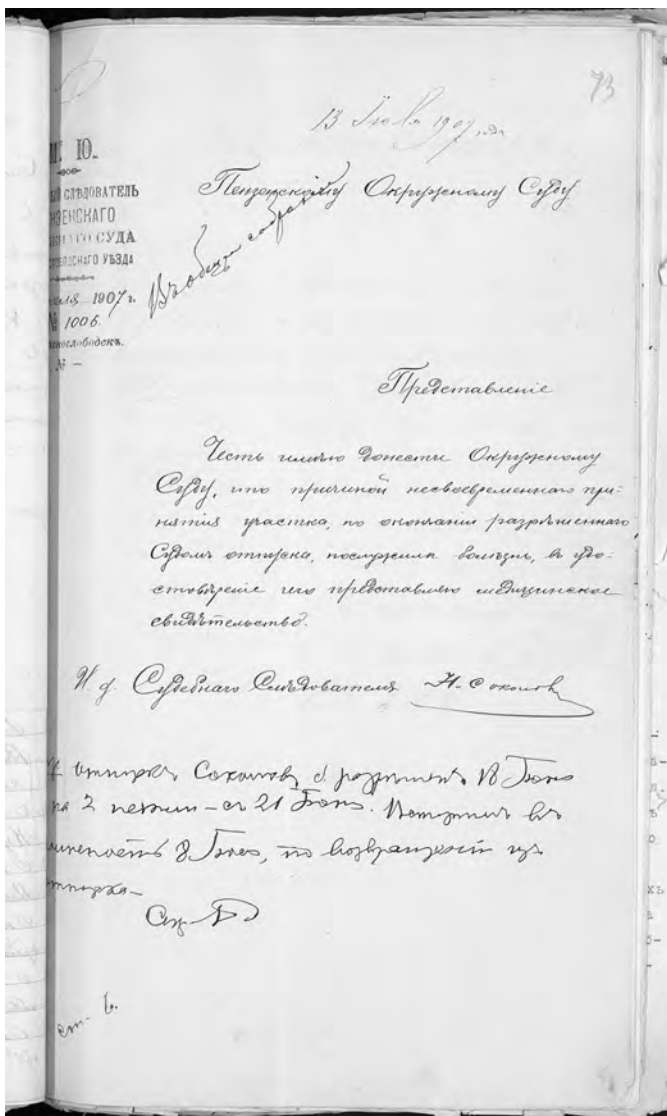 73
13 Июля 1907 года
М. Ю.
СЛѢДОВАТЕЛЬ
ЗЕНСКАГО
СУДА
УѢЗДА
1907 г.
№ 1006.
нослободскъ.
№ –
Пензенскому Окружному Суду
Въ общее собраніе
Представленіе
Честь имѣю донести Окружному
Суду, что причиной несвоевременнаго при-
нятія участка, по окончаніи разрѣшеннаго
Судомъ отпуска, послужила болѣзнь, въ удо-
стовѣреніе чего представляю медицинское
свидѣтельство.
И. д. Судебнаго Слѣдователя Н. Соколовъ
отпускъ Соколову б. разрѣшенъ 18 Іюня
на 2 недѣли – съ 21 Іюня. Вступилъ въ
8 Іюля, по возвращеніи изъ
отпуска –
ст. 6.